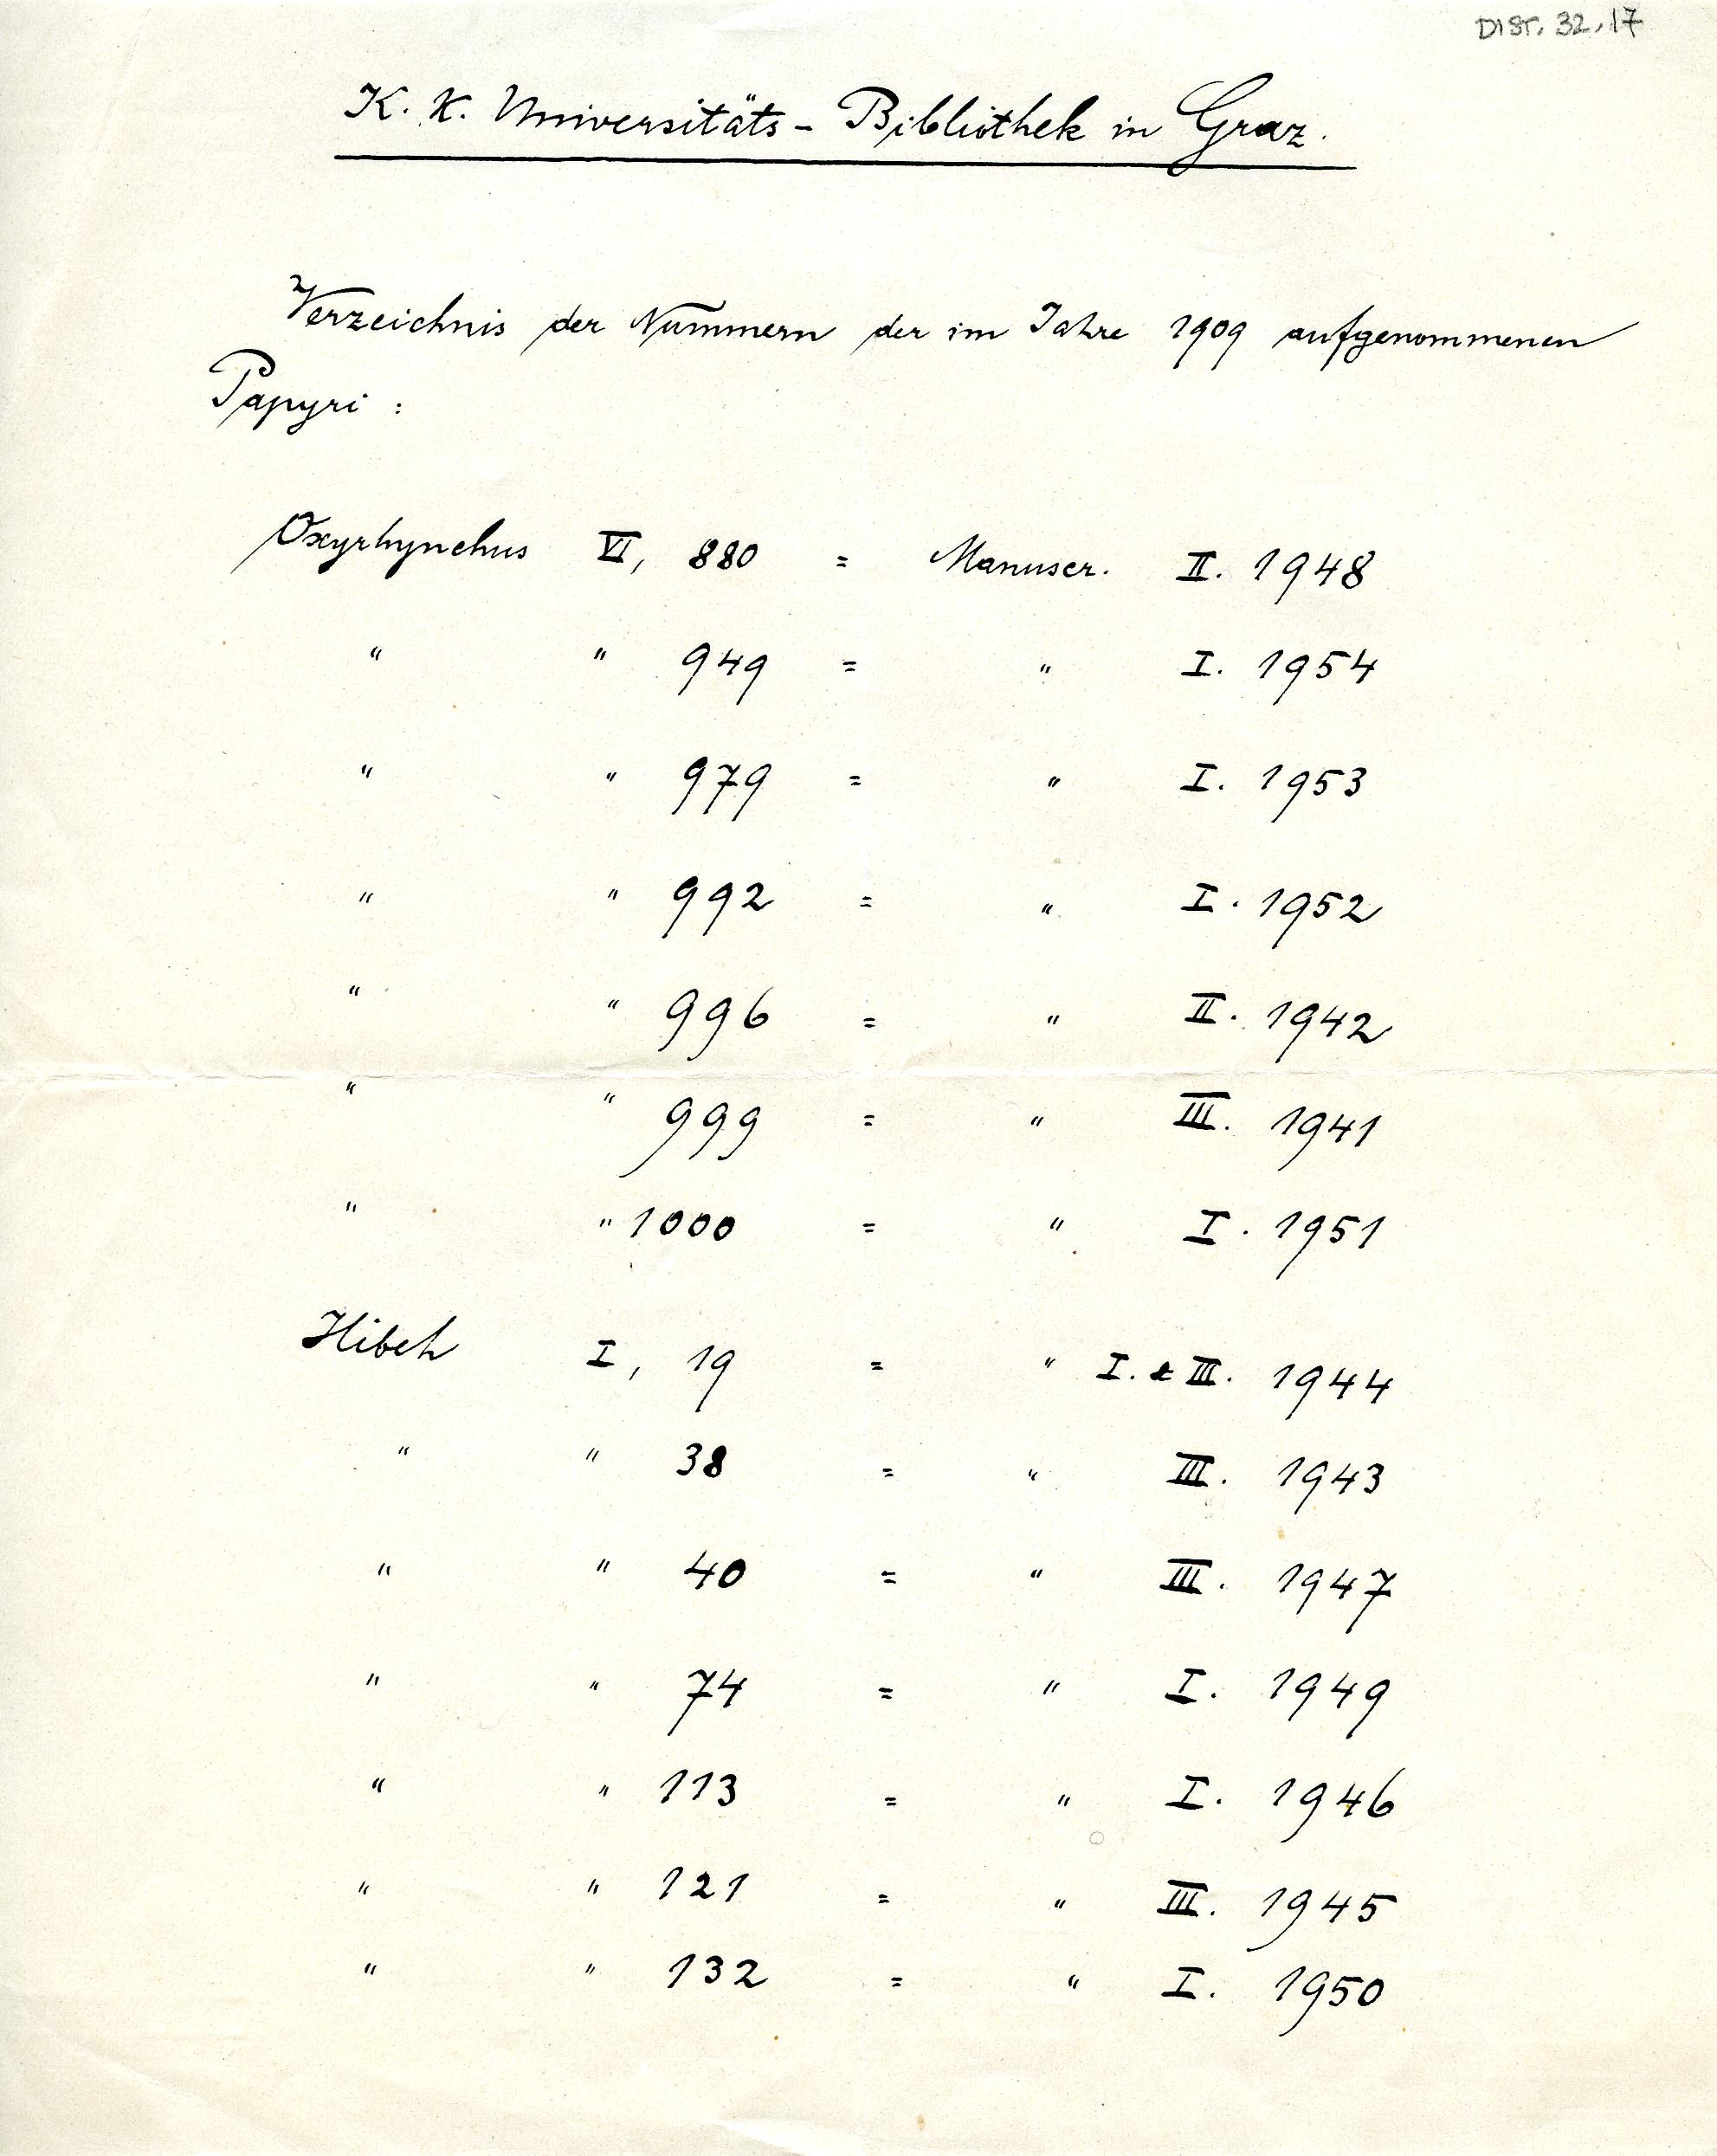 DIST. 32.17
K. K. Universitäts-Bibliothek in Graz.
Verzeichnis der Nummern der im Jahre 1909 aufgenommenen
Papyri :
Oxyrhynchus VI, 880 = Manuscr. II. 1948
" " 949 = " I. 1954
" " 979 = " I. 1953
" " 992 = " I. 1952
" " 996 = " II. 1942
" " 999 = " III. 1941
" " 1000 = " I. 1951
Hibeh I, 19 = " I. & III. 1944
" " 38 = " III. 1943
" " 40 = " III. 1947
" " 74 = " I. 1949
" " 113 = " I. 1946
" " 121 = " III. 1945
" " 132 = " I. 1950